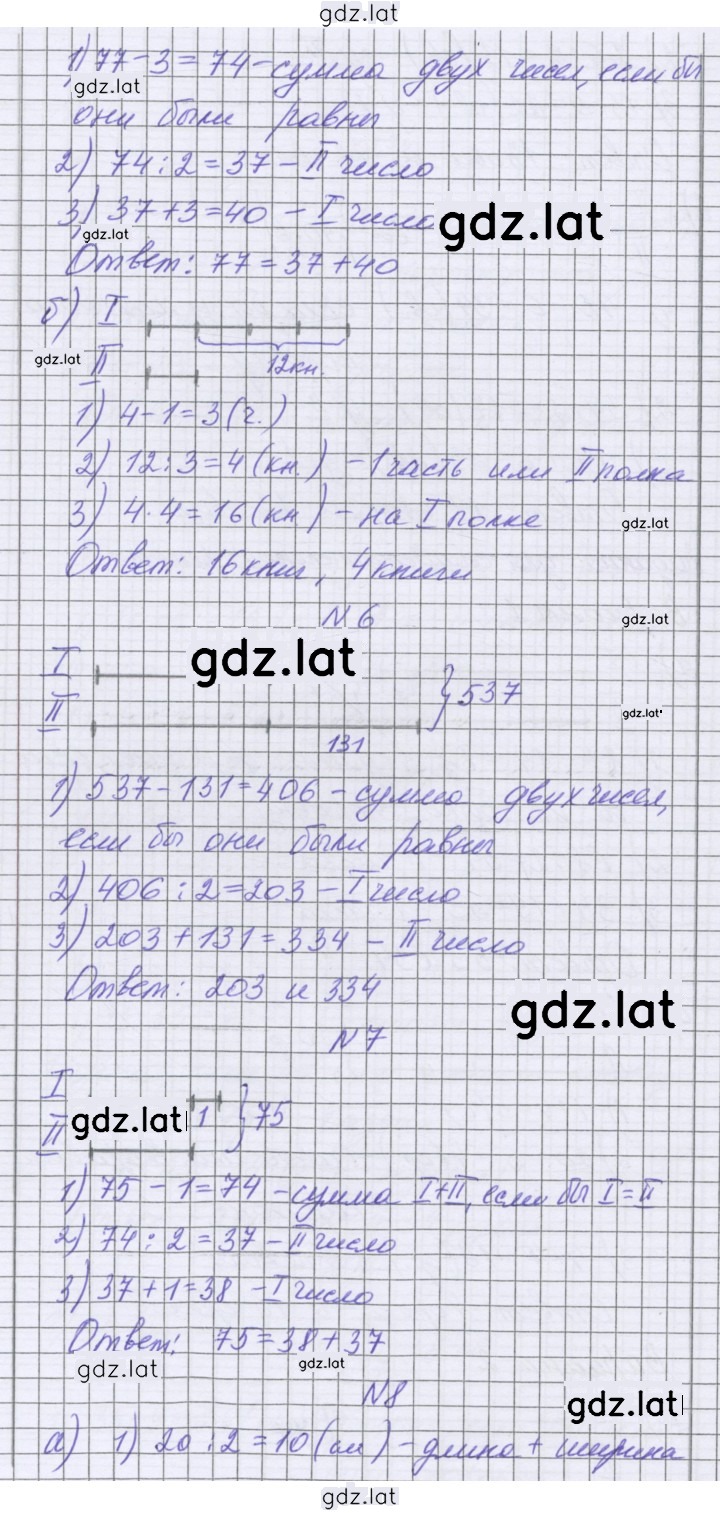 gdz.lat
1) 77-3=74-сумма двух чисел, если бы
gdz.lat
они были равны
2) 74:2=37-II число
3) 37+3=40-I число
gdz.lat
gdz.lat
Ответ: 77=37+40
б) I
gdz.lat
II 12кн.
1) 4-1=3(ч.)
2) 12:3=4(кн.)-1часть или II полка
3) 4·4=16(кн)-на I полке
gdz.lat
Ответ: 16книг, 4книги
N6
gdz.lat
gdz.lat
I
II }537
gdz.lat
131
1) 537-131=406-сумма двух чисел,
если бы они были равны
2) 406:2=203-I число
3) 203+131=334-II число
Ответ: 203 и 334
gdz.lat
N7
I
II gdz.lat 1 }75
1) 75-1=74-сумма I+II, если бы I=II
2) 74:2=37-II число
3) 37+1=38-I число
Ответ: 75=38+37
gdz.lat
gdz.lat
N8
gdz.lat
а) 1) 20:2=10(см)-длина + ширина
gdz.lat